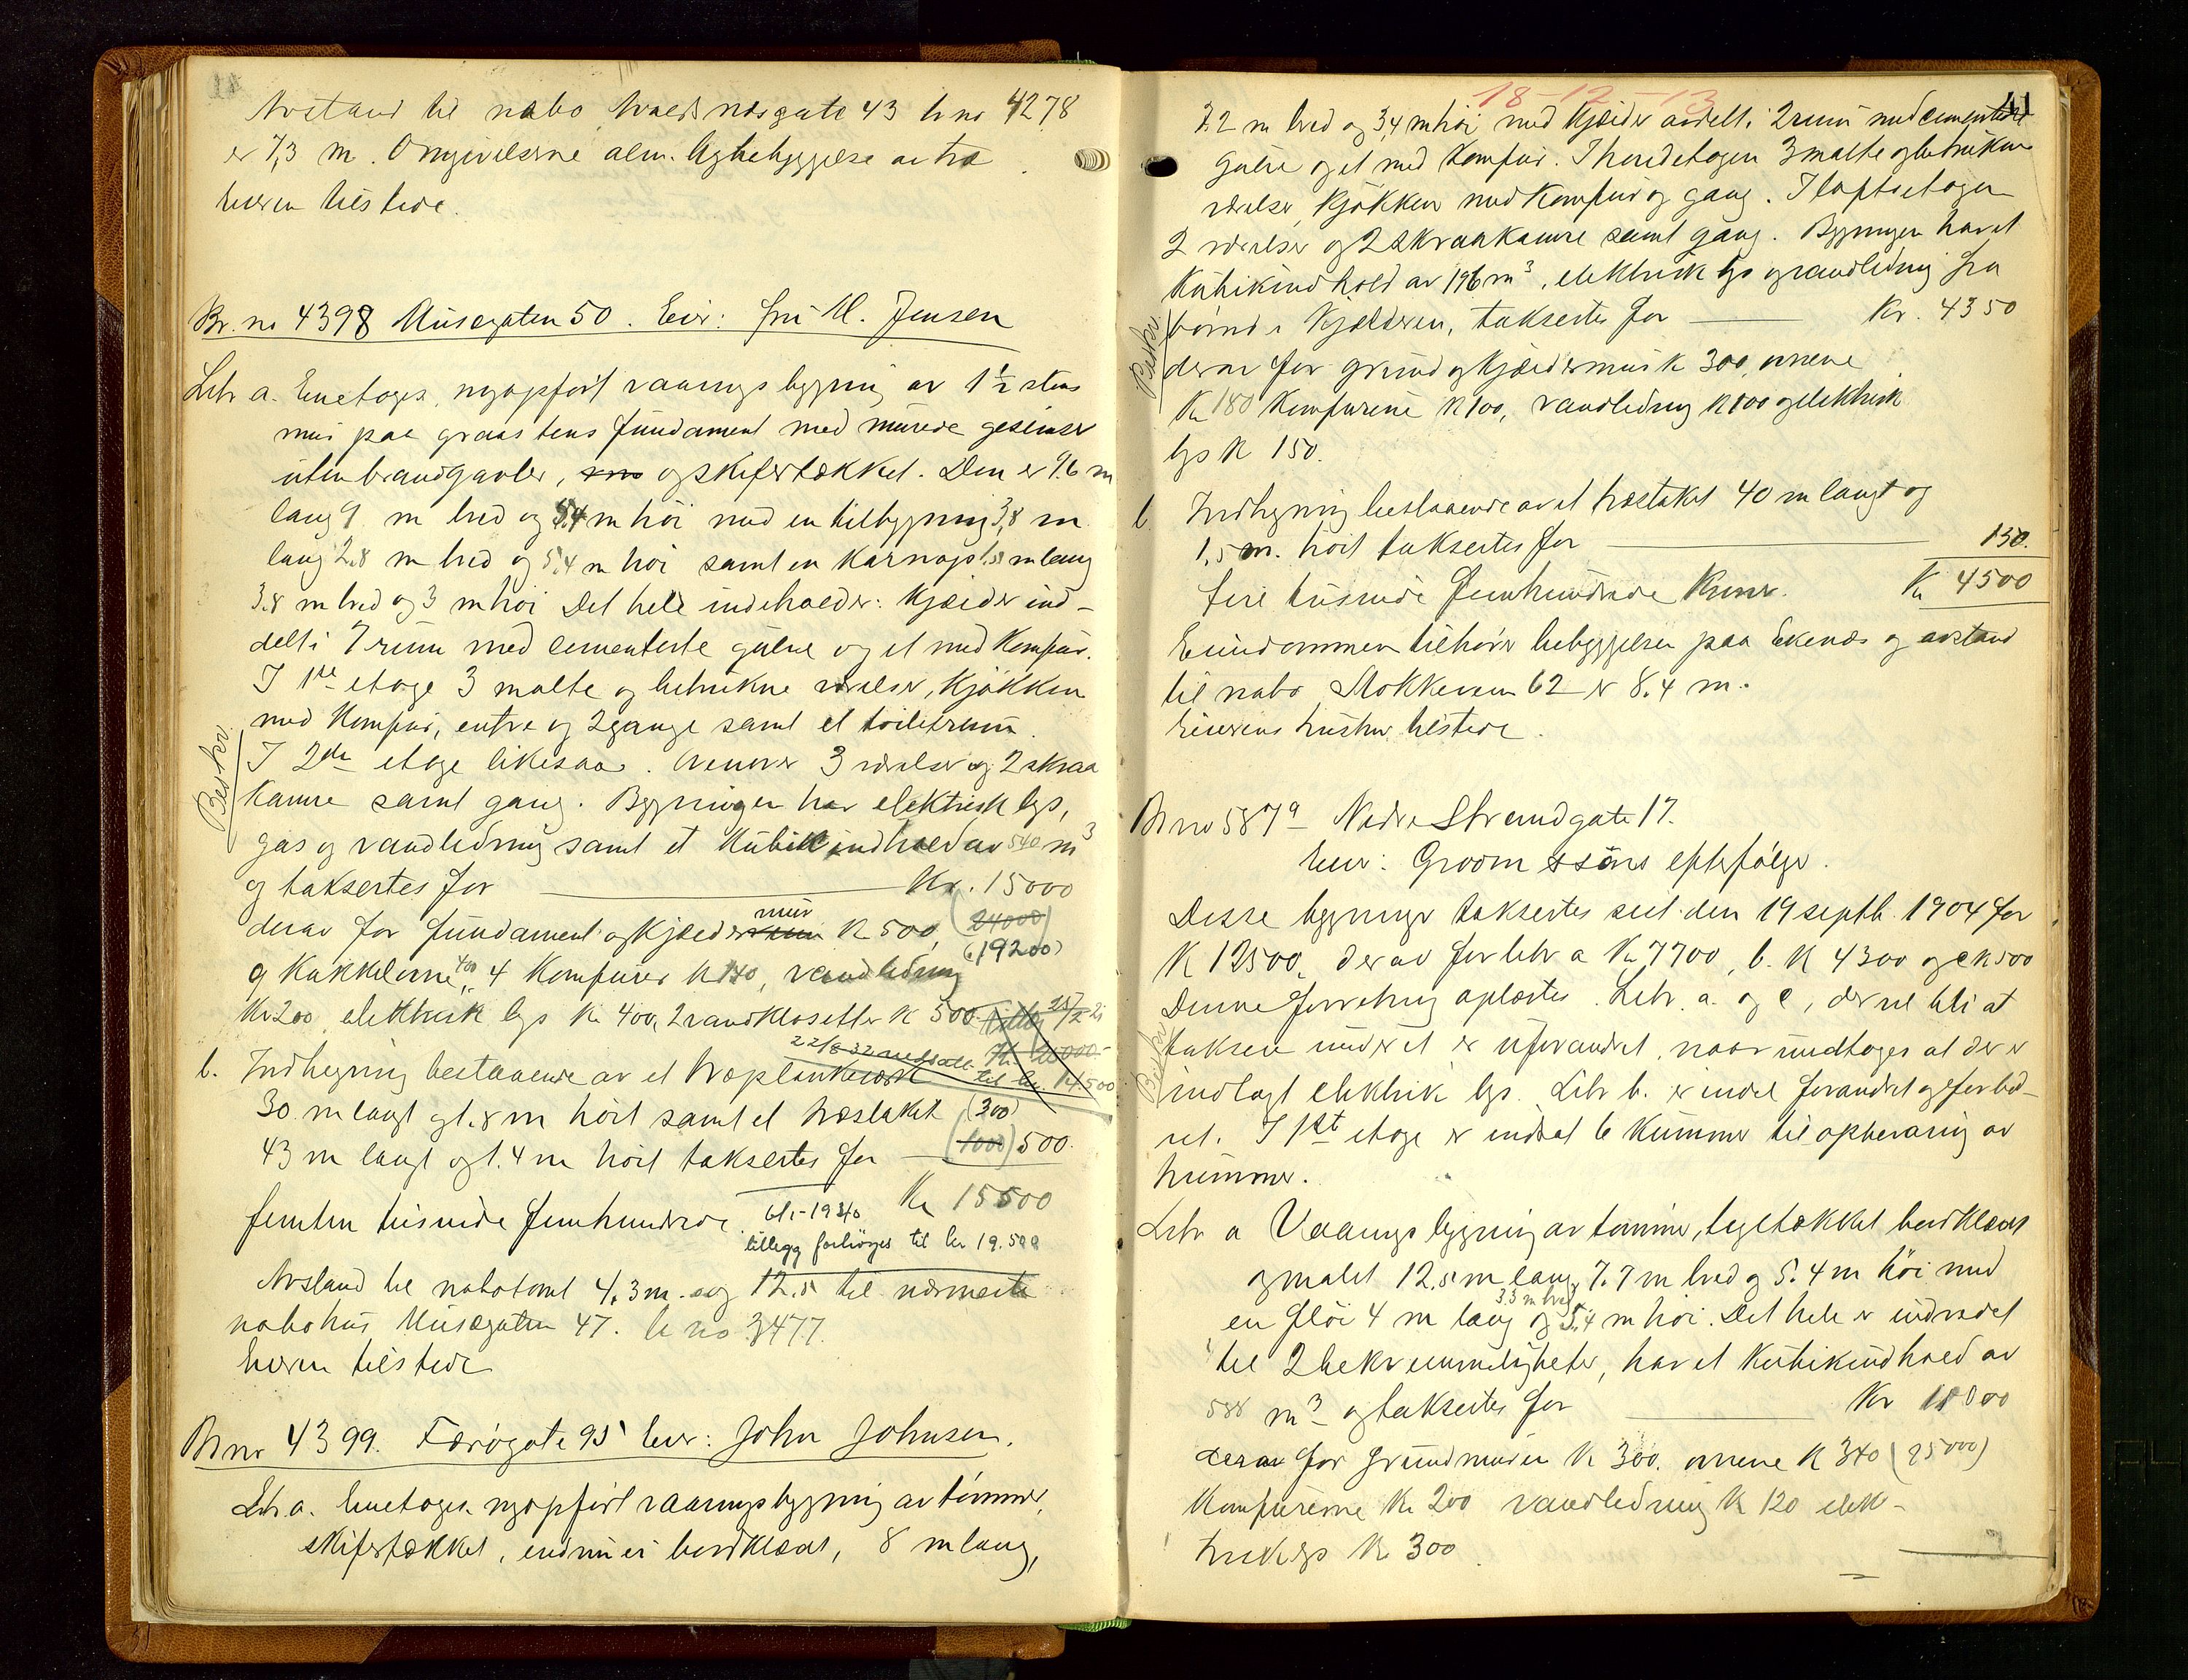 Avstand til nabo Hvalsnæsgate 43 br no 4278
er 7,3 m. Omgivelserne alm. bybebyggelse av træ
Eieren tilstede.
Br. no 4398 Musegaten 50. Eier: fru M. Jensen
Litr a. Enetages nyopført vaaningsbygning av 1½ stens
mur paa graastens fundament med murede gesimser
uten brandgavler, og skifertækket. Den er 9,6 m
lang 9 m bred og 5,4 m høi med en tilbygning 3,8 m
lang 2,8 m bred og 5,4 m høi samt en karnap 1,5 m lang
3,8 m bred og 3 m høi Det hele indeholder: Kjælder ind-
delt i 7 rum med cementerte gulve og et med komfur.
I 1ste etage 3 malte og betrukne værelser, kjøkken
med komfur, entre og 2 gange samt et toiletrum.
I 2den etage likesaa. Ovenover 3 værelser og 2 skraa
kamre samt gang. Bygningen har elektrisk lys,
Beskr.
gas og vandledning samt et kubikindhold av 540 m3
og taksertes for Kr. 15000
derav for fundament og kjælder mur K 500, (24000)
(19200)
9 kakkelovne 400, 4 komfurer K 140, vandledning
Kr 200 elektrisk lys Kr 400, 2 vandklosetter K 500.
22/8 32 nedsatt til kr. 14.500
b. Indhegning bestaaende av et træplankeværk
30 m langt og 1.8 m høit samt et træstaket (300)
43 m langt og 1.4 m høit taksertes for (1000) 500.
Kr 15500
femten tusinde femhundrede
6/1-1940
tillegg forhøyes til kr 19.500
Avstand til nabotomt 4,3 m. og 12.5 til nærmeste
nabohus Musegaten 47. br no 3477.
Eieren tilstede
Br no 4399. Færøgate 95 Eier: John Johnsen.
Litr a. Enetages nyopført vaaningsbygning av tømmer,
skifertækket, endnu ei bordklædt, 8 m lang,
18-12-13
41
7.2 m bred og 3,4 m høi med kjælder avdelt i 2 rum med cementerte
gulve og et med komfur. I hovedetagen 3 malte og betrukne
værelser, kjøkken med komfur og gang. I loftsetagen
2 værelser og 2 skraakamre samt gang. Bygningen har et
kubikindhold av 196 m3, elektrisk lys og vandledning fra
brønd i kjælderen, taksertes for Kr. 4350
Beskr.
derav for grund og kjældermur K 300, ovnene
Kr 180 komfurene K 100, vandledning K 100 og elektrisk
lys K 150.
b. Indhegning bestaaende av et træstaket 40 m langt og
1,5 m. høit taksertes for 150.
fire tusinde femhundrede Kroner. Kr 4500
Eiendommen tilhører bebyggelsen paa Ekenæs og avstand
til nabo Stokkaveien 62 er 8.4 m.
Eierens hustru tilstede.
Br no 587a Nedre Strandgate 17.
Eier: Groom & søns efterfølger.
Disse bygninger taksertes sist den 19 septb. 1904 for
K 12500, derav for litr a Kr 7700, b. K 4300 og c K 500
Denne forretning oplæstes. Litr. a. og c, der vil bli at
taksere under et er uforandret, naar undtages at der er
Beskr.
indlagt elektrik lys. Litr b. er endel forandret og forbed-
ret. I 1st etage er indsat 6 kummer til opbevaring av
hummer.
Litr a Vaaningsbygning av tømmer, teglstækket bordklædt
og malet 12.5 m lang, 7.7 m bred og 5.4 m høi med
en fløi 4 m lang 3.5 m bred og 5,4 m høi. Det hele er indredet
til 2 bekvemmeligheter, har et kubikindhold av
588 m3 og taksertes for Kr 11000
derav for grundmuren K 300. ovnene K 340 (25000)
Komfurerne Kr 200 vandledning K 120 elek-
trisk lys K 300